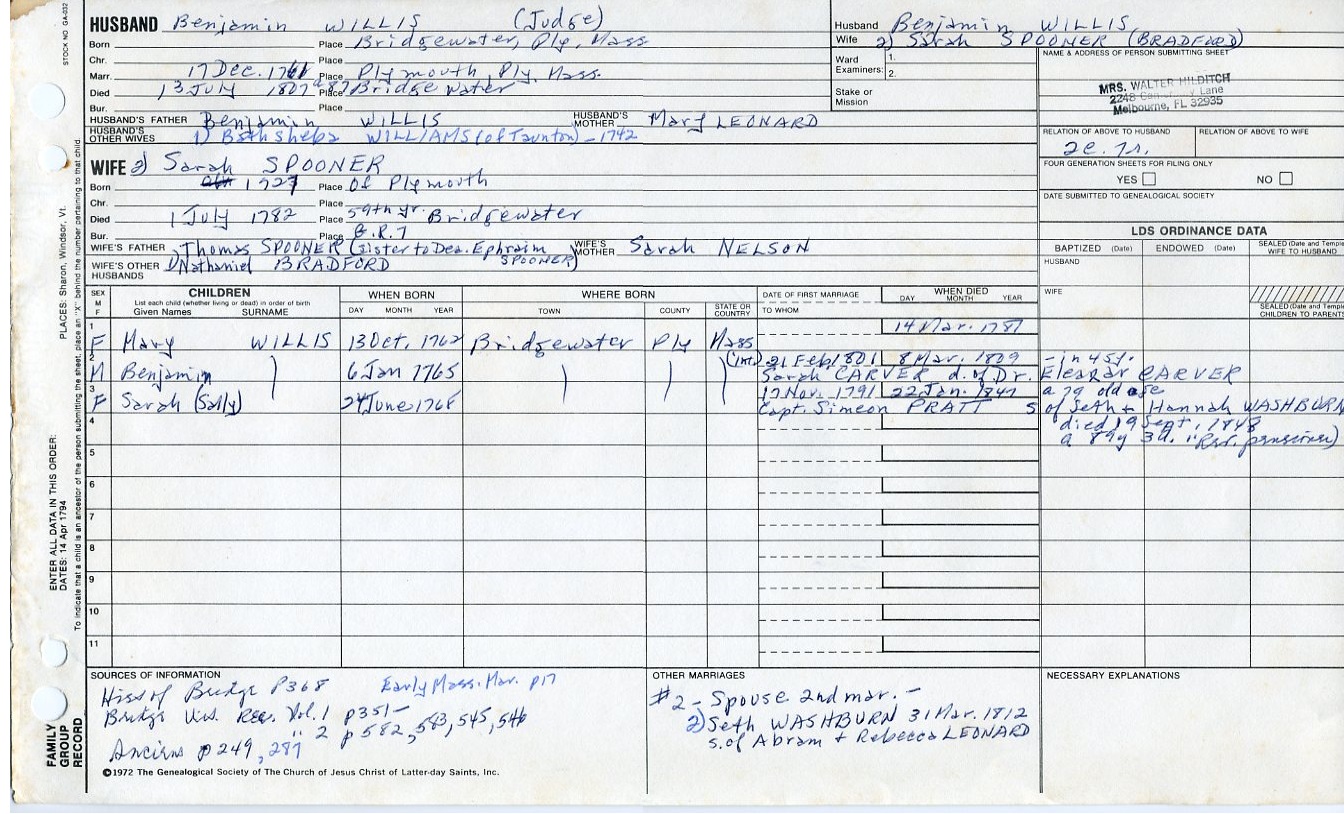 STOCK NO. GA-032
HUSBAND Benjamin WILLIS (Judge)
Born Place Bridgewater, Ply, Mass
Chr. Place
Marr. 17 Dec. 1761 Place Plymouth, Ply, Mass.
Died 13 July 1807 a 87 Place Bridgewater
Bur. Place
HUSBAND'S FATHER Benjamin WILLIS HUSBAND'S MOTHER Mary LEONARD
HUSBAND'S OTHER WIVES 1) Bathsheba WILLIAMS (of Taunton) - 1742
Husband Benjamin WILLIS
Wife 2) Sarah SPOONER (BRADFORD)
Ward Examiners: 1.
2.
Stake or Mission
NAME & ADDRESS OF PERSON SUBMITTING SHEET
MRS. WALTER HILDITCH
2248 Lane
Melbourne, FL 32935
RELATION OF ABOVE TO HUSBAND RELATION OF ABOVE TO WIFE
FOUR GENERATION SHEETS FOR FILING ONLY
YES NO
DATE SUBMITTED TO GENEALOGICAL SOCIETY
WIFE 2) Sarah SPOONER
Born 1727 Place of Plymouth
Chr. Place
Died 1 July 1782 Place 59th yr. Bridgewater
Bur. Place G.R.7
WIFE'S FATHER Thomas SPOONER (sister to Dea. Ephraim SPOONER) WIFE'S MOTHER Sarah NELSON
WIFE'S OTHER HUSBANDS 1) Nathaniel BRADFORD
LDS ORDINANCE DATA
BAPTIZED (Date) ENDOWED (Date) SEALED (Date and Temple) WIFE TO HUSBAND
HUSBAND
WIFE
SEALED (Date and Temple) CHILDREN TO PARENTS
SEX M F CHILDREN List each child (whether living or dead) in order of birth Given Names SURNAME
WHEN BORN DAY MONTH YEAR
WHERE BORN TOWN COUNTY STATE OR COUNTRY
DATE OF FIRST MARRIAGE TO WHOM
WHEN DIED DAY MONTH YEAR
1 F Mary WILLIS 13 Oct. 1762 Bridgewater Ply Mass 14 Mar. 1787
2 M Benjamin 6 Jan 1765 (int.) 21 Feb 1801 8 Mar. 1809 - in 45y.
Sarah CARVER d. of Dr. Eleazar CARVER
3 F Sarah (Sally) 24 June 1768 17 Nov. 1791 22 Jan. 1847 a 79 old age
Capt. Simeon PRATT s of Seth & Hannah WASHBURN
died 19 Sept. 1848
a 89y 3d. "Rev. pensioner)
4
5
6
7
8
9
10
11
SOURCES OF INFORMATION
Hist of Bridge P368 Early Mass. Mar. p17
Bridge Vit. Rec. Vol. 1 p351-
" 2 p582, 583, 545, 546
Anciens p249, 287
©1972 The Genealogical Society of The Church of Jesus Christ of Latter-day Saints, Inc.
OTHER MARRIAGES
#2 - Spouse 2nd mar. -
2) Seth WASHBURN 31 Mar. 1812
s. of Abram & Rebecca LEONARD
NECESSARY EXPLANATIONS
PLACES: Sharon, Windsor, Vt.
ENTER ALL DATA IN THIS ORDER:
DATES: 14 Apr 1794
To indicate that a child is an ancestor of the person submitting the sheet, place an "X" behind the number pertaining to that child.
FAMILY GROUP RECORD